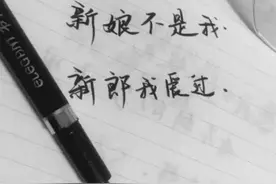 新娘不是我.
新郎我爱过.
elegant